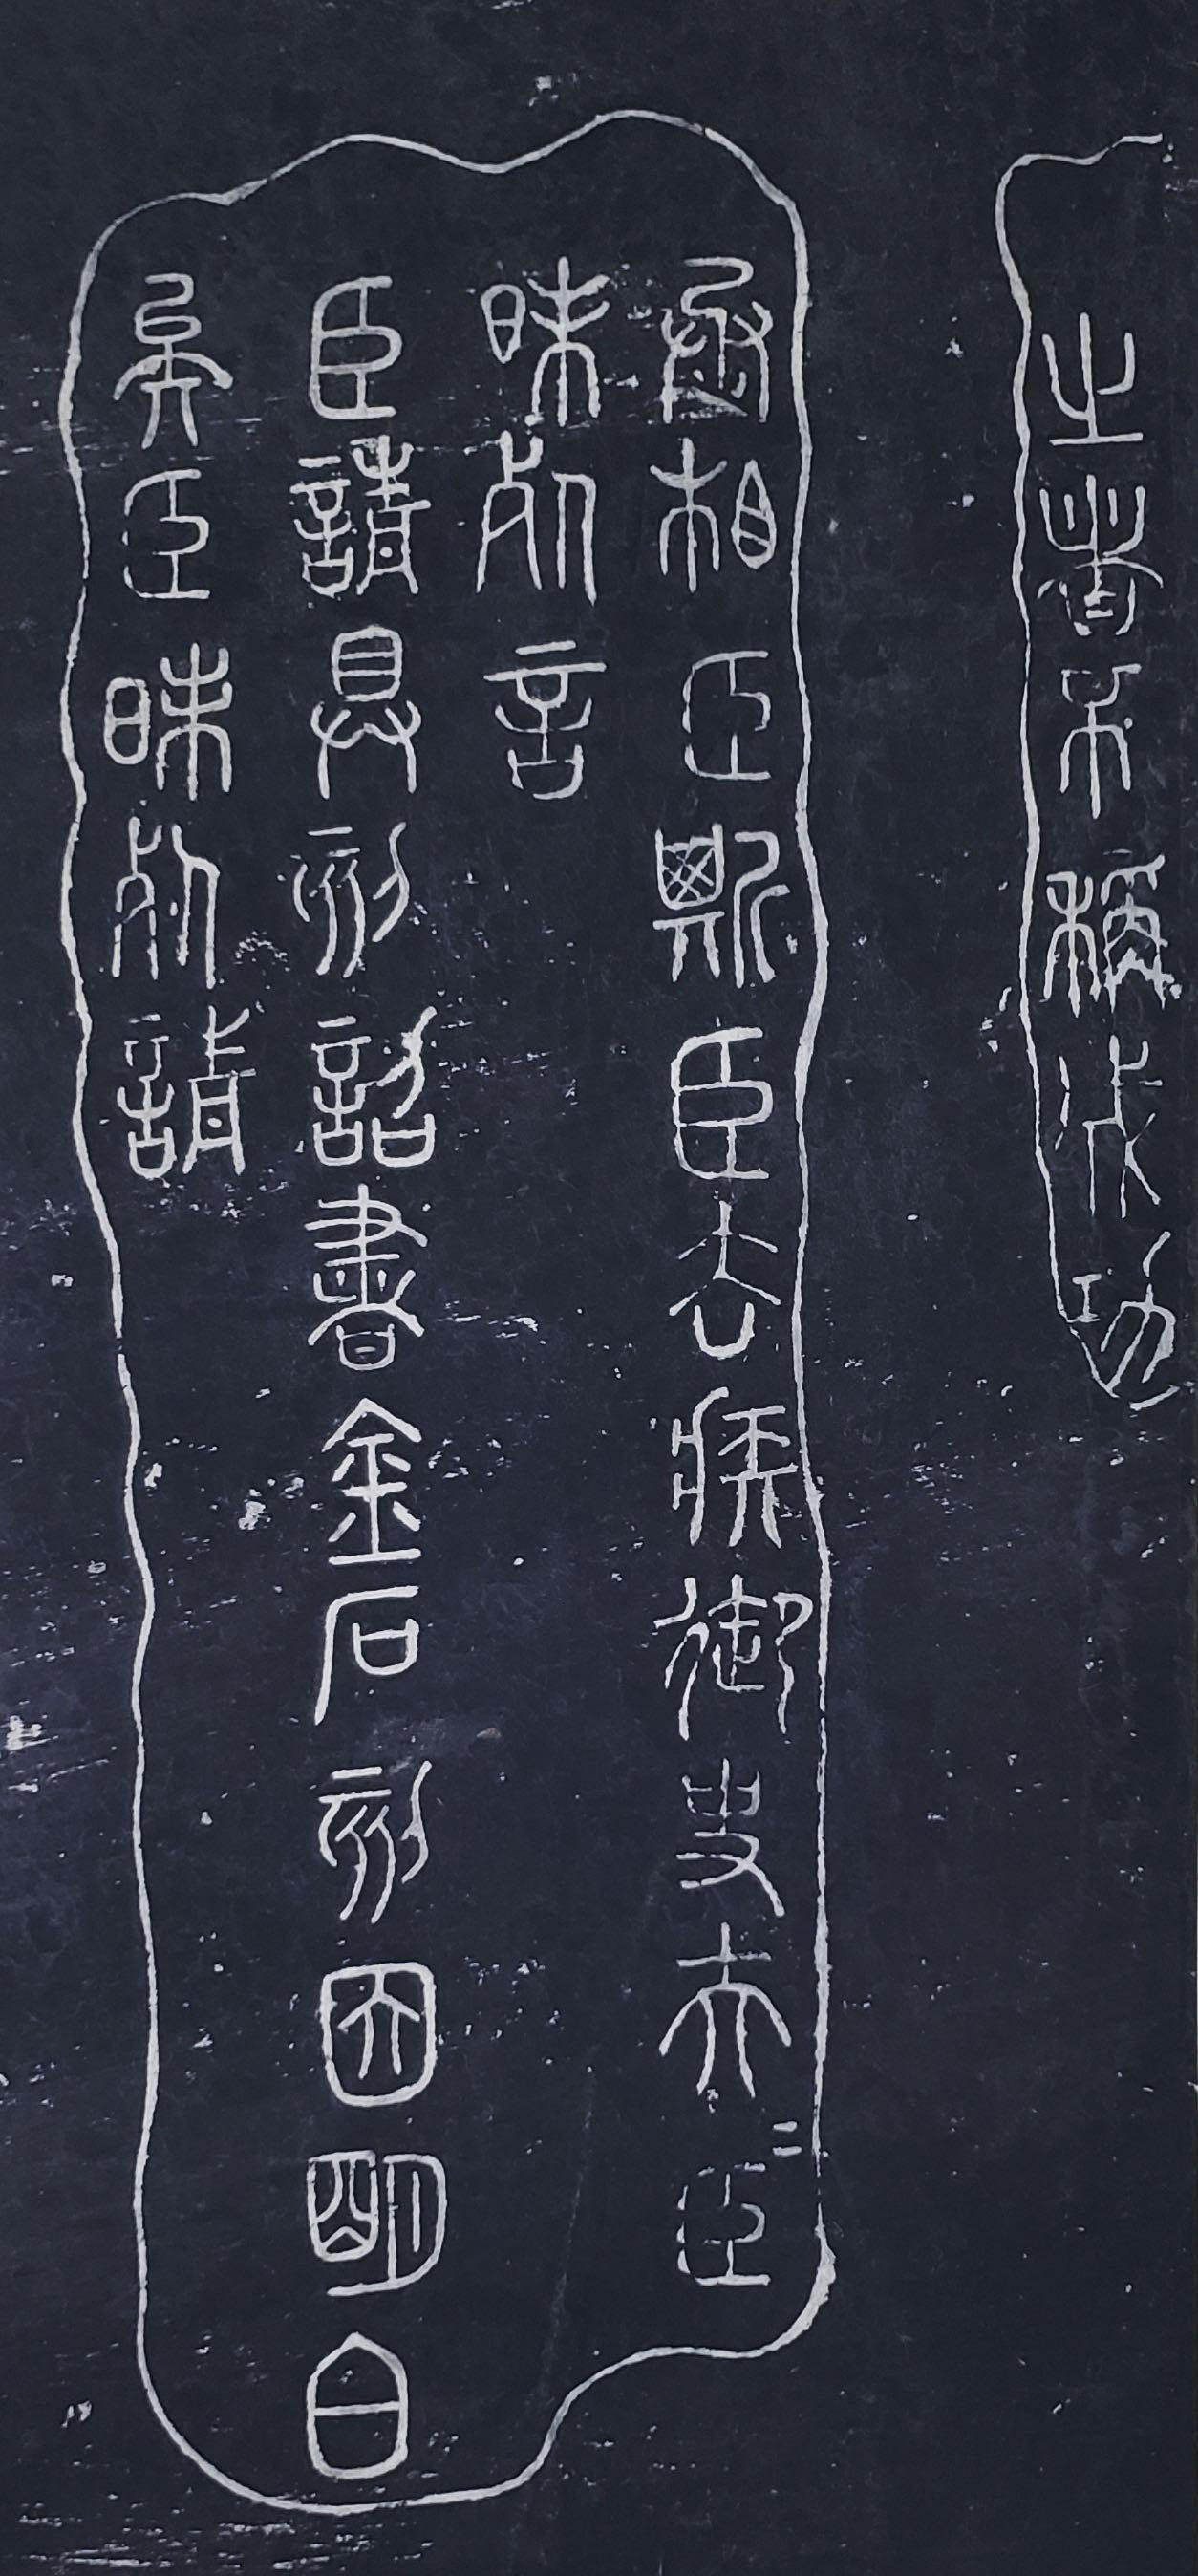 之者不稱成功
丞相臣斯臣去疾御史夫=臣
昧死言
臣請具刻詔書金石刻因明白
矣臣昧死請